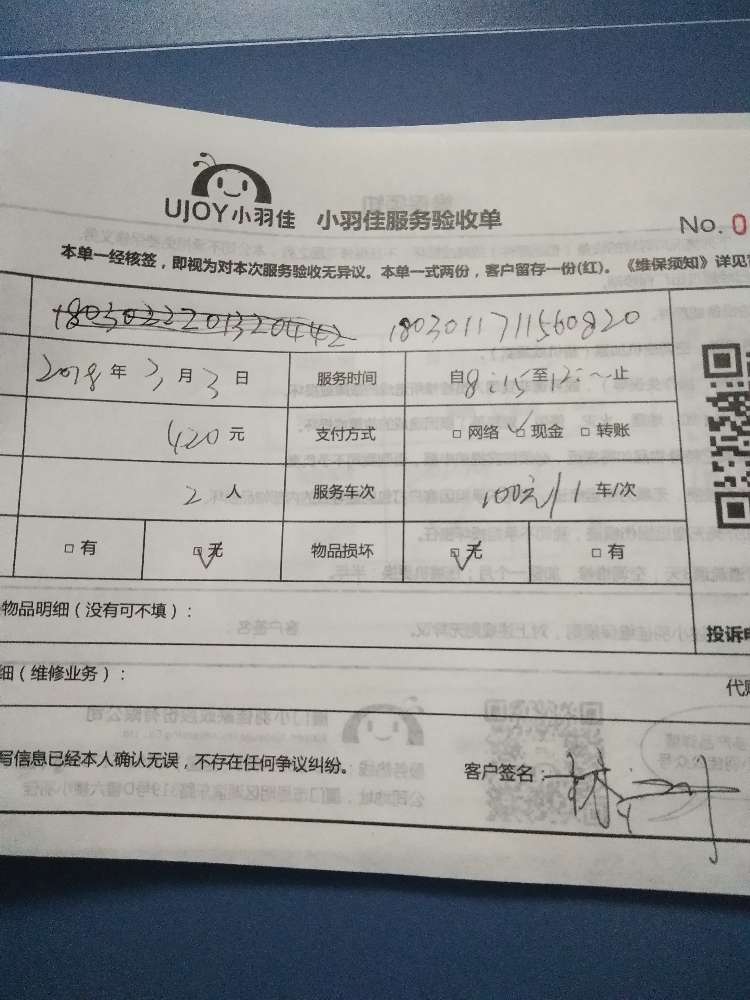 UJOY小羽佳 小羽佳服务验收单
No. 0
本单一经核签，即视为对本次服务验收无异议。本单一式两份，客户留存一份(红)。《维保须知》详见
180301171156 0820
2018年3月3日 服务时间 自8:15至12:~止
420元 支付方式 □网络 □现金 □转账
2人 服务车次 100元/1车/次
□有 □无 物品损坏 □无 □有
物品明细（没有可不填）：
投诉电
细（维修业务）：
代购
写信息已经本人确认无误，不存在任何争议纠纷。
客户签名：